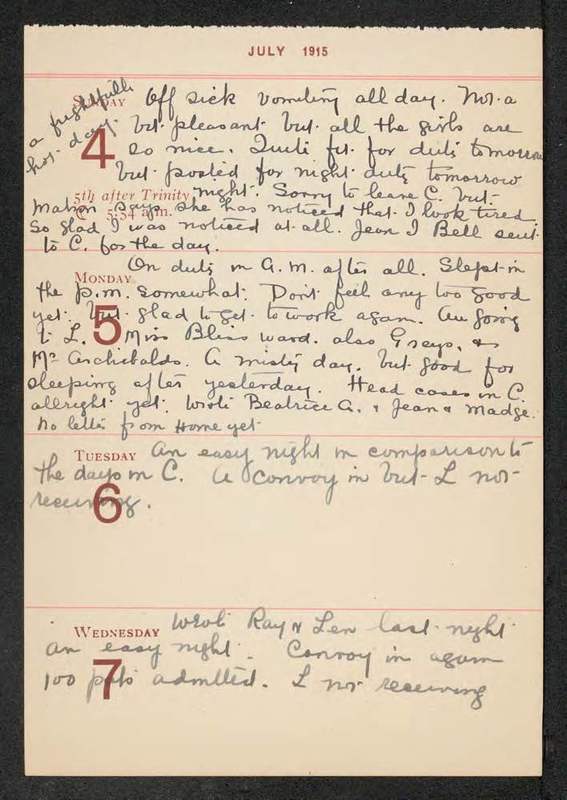 JULY 1915
SUNDAY
4
5th after Trinity
5:54 a.m.
a frightfully
hot day.
Off sick vomiting all day. Not a
bit pleasant but all the girls are
so nice. Quite fit for duty tomorrow
but posted for night duty tomorrow
night. Sorry to leave C. but
Matron says she has noticed that I look tired
So glad I was noticed at all. Jean & Bell sent
to C. for the day.
MONDAY
5
On duty in a.m. after all. Slept in
the p.m. somewhat. Don't feel any too good
yet. but glad to get to work again. Am going
to L. Miss Bliss ward. also Grays, &
Mc Archibalds. A misty day. but good for
sleeping after yesterday. Head cases in C.
allright yet. Wrote Beatrice A. & Jean & Madge.
No letter from Home yet
TUESDAY
6
An easy night in comparison to
the days in C. A Convoy in but L not
receiving.
WEDNESDAY
7
Wrote Ray & Len last night
an easy night. Convoy in again
100 pats admitted. L not receiving